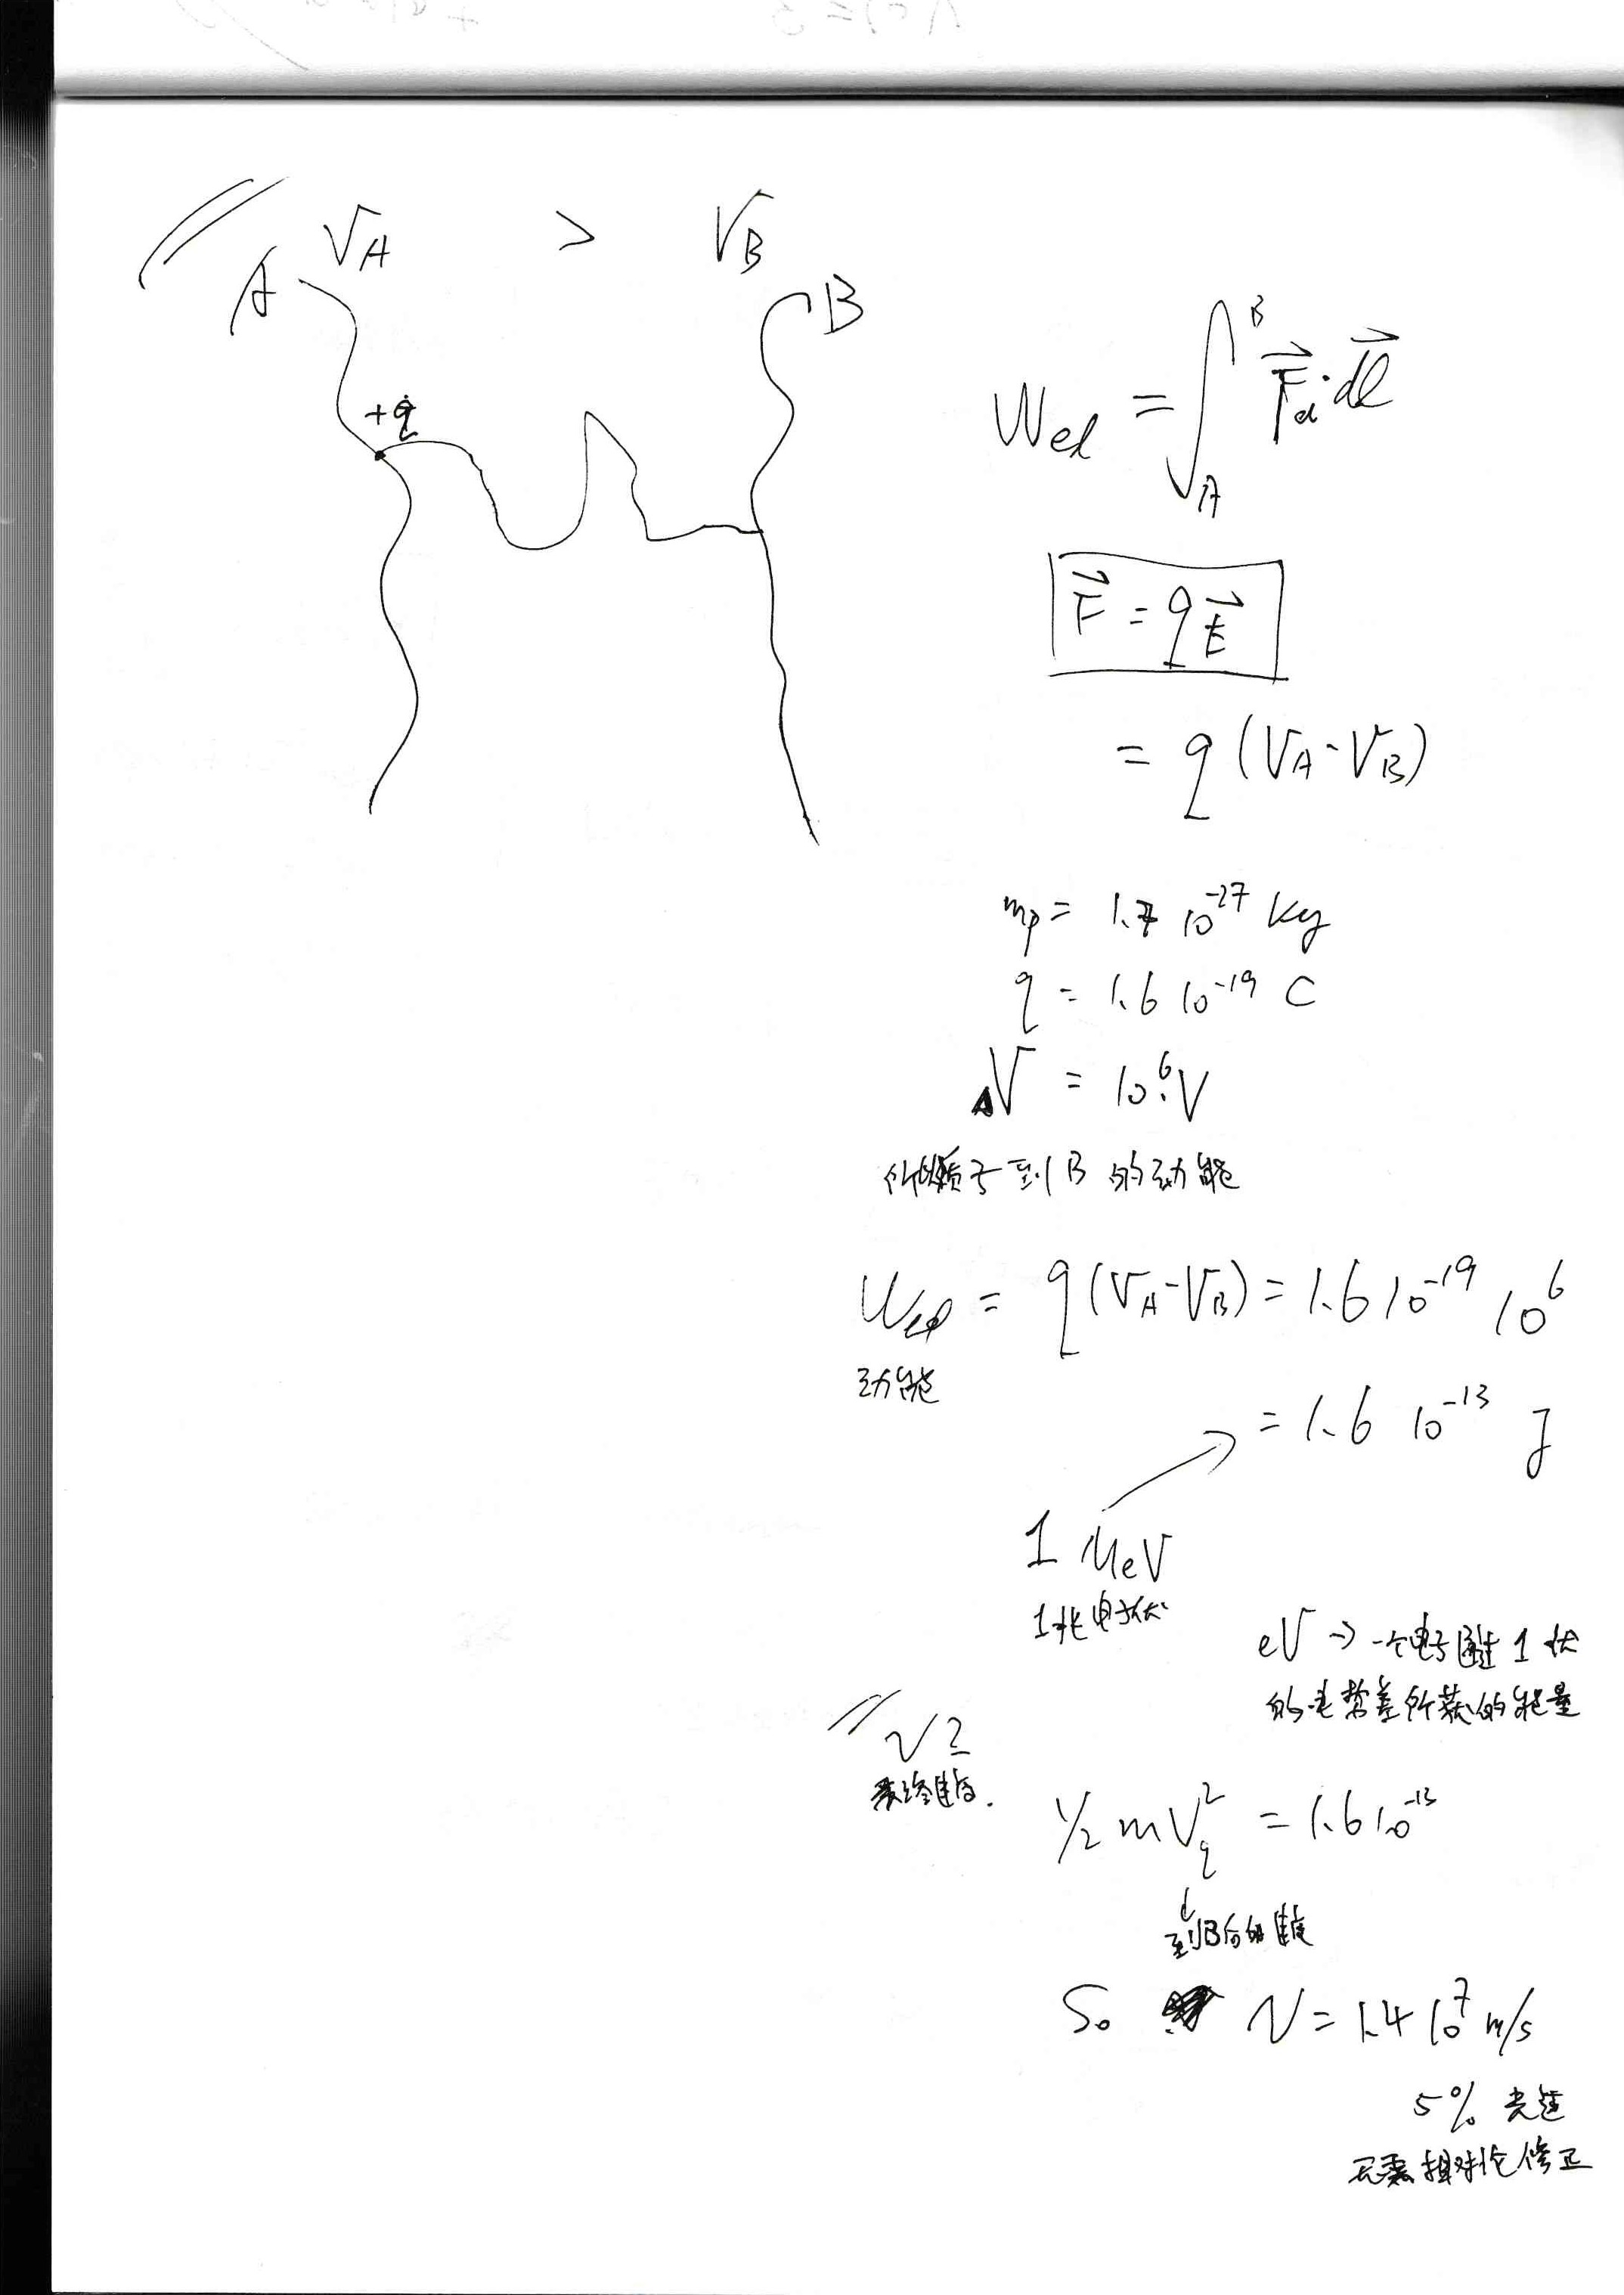 V_A > V_B
A B
+q
W_el = ∫_A^B F_el · dl
F = qE
= q (V_A - V_B)
m_p = 1.7 10^-27 kg
q = 1.6 10^-19 C
ΔV = 10^6 V
质子到B的动能
W_el = q(V_A-V_B) = 1.6 10^-19 10^6
动能
= 1.6 10^-13 J
1 MeV
1兆电子伏
eV → 一个电子通过1伏
的电势差所获的能量
v?
最终速度.
1/2 mv_q^2 = 1.6 10^-13
到B台的速度
So v = 1.4 10^7 m/s
5% 光速
无需相对论修正